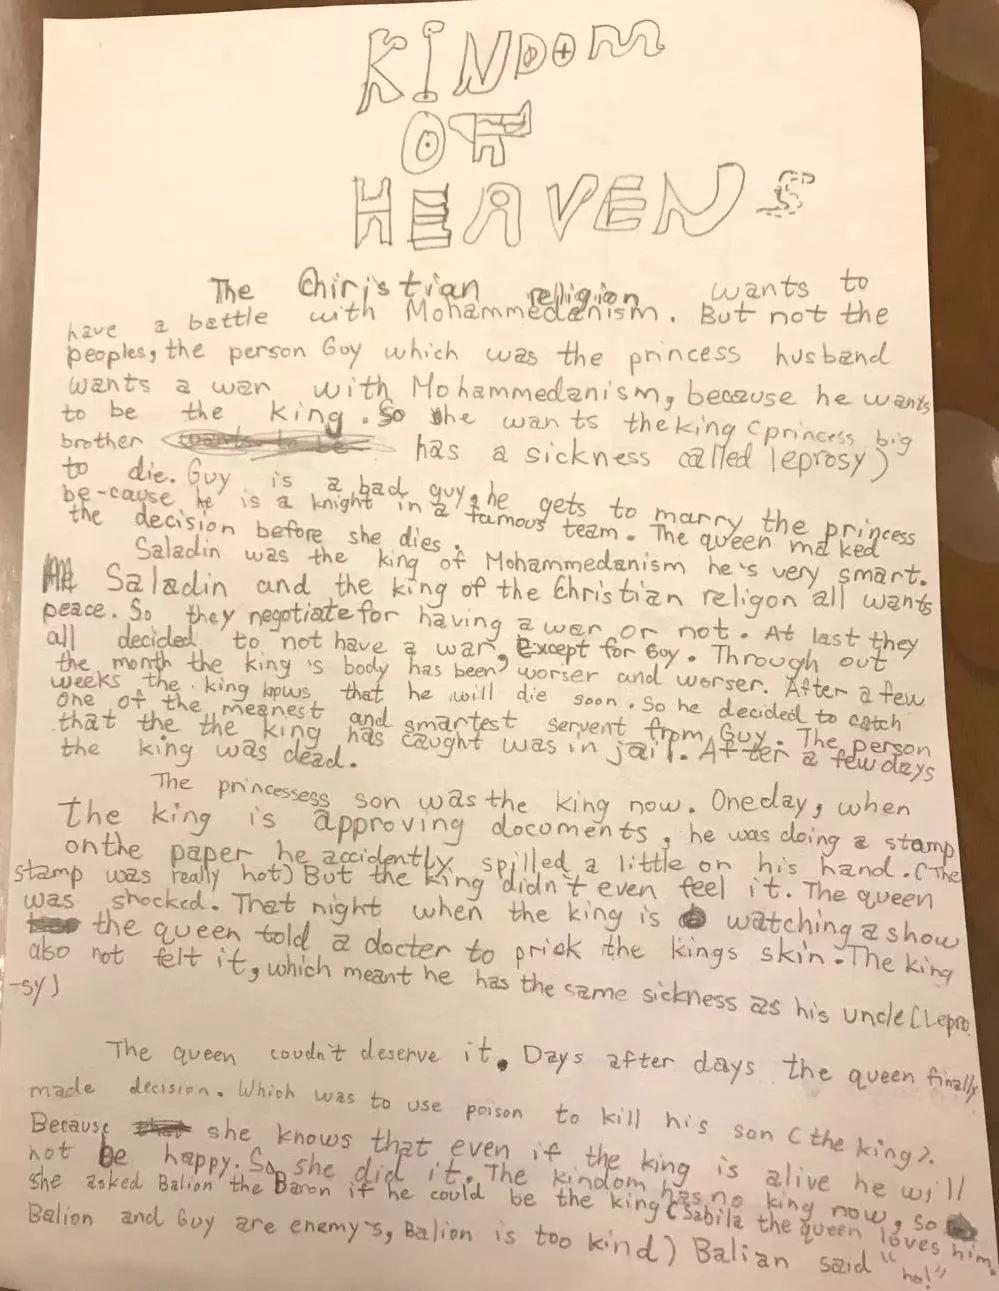 KINDOM
OF
HEAVENS
The Chiristian relligion wants to
have a battle with Mohammedanism. But not the
peoples, the person Goy which was the princess husband
wants a war with Mohammedanism, because he wants
to be the king. So she wants the king (princess big
brother wants to be has a sickness called leprosy)
to die. Guy is a bad guy, he gets to marry the princess
be-cause he is a knight in a famous team. The queen maked
the decision before she dies.
Saladin was the king of Mohammedanism he's very smart.
Saladin and the king of the Christian religon all wants
peace. So they negotiate for having a war or not. At last they
all decided to not have a war, Except for Guy. Through out
the month the king's body has been worser and worser. After a few
weeks the king knows that he will die soon. So he decided to catch
one of the meanest and smartest servent from Guy. The person
that the the king has caught was in jail. After a few days
the king was dead.
The princessess son was the king now. One day, when
the king is approving docoments, he was doing a stamp
on the paper he accidently spilled a little on his hand. (The
stamp was really hot) But the king didn't even feel it. The queen
was shocked. That night when the king is watching a show
the queen told a docter to prick the kings skin. The king
also not felt it, which meant he has the same sickness as his uncle (Lepro
-sy)
The queen coudn't deserve it. Days after days the queen finally
made decision. Which was to use poison to kill his son (the king).
Because that she knows that even if the king is alive he will
not be happy. So she did it. The kindom has no king now, so
she asked Balion the Baron if he could be the king (Sabila the queen loves him.
Balion and Guy are enemy's, Balion is too kind) Balian said "no!"